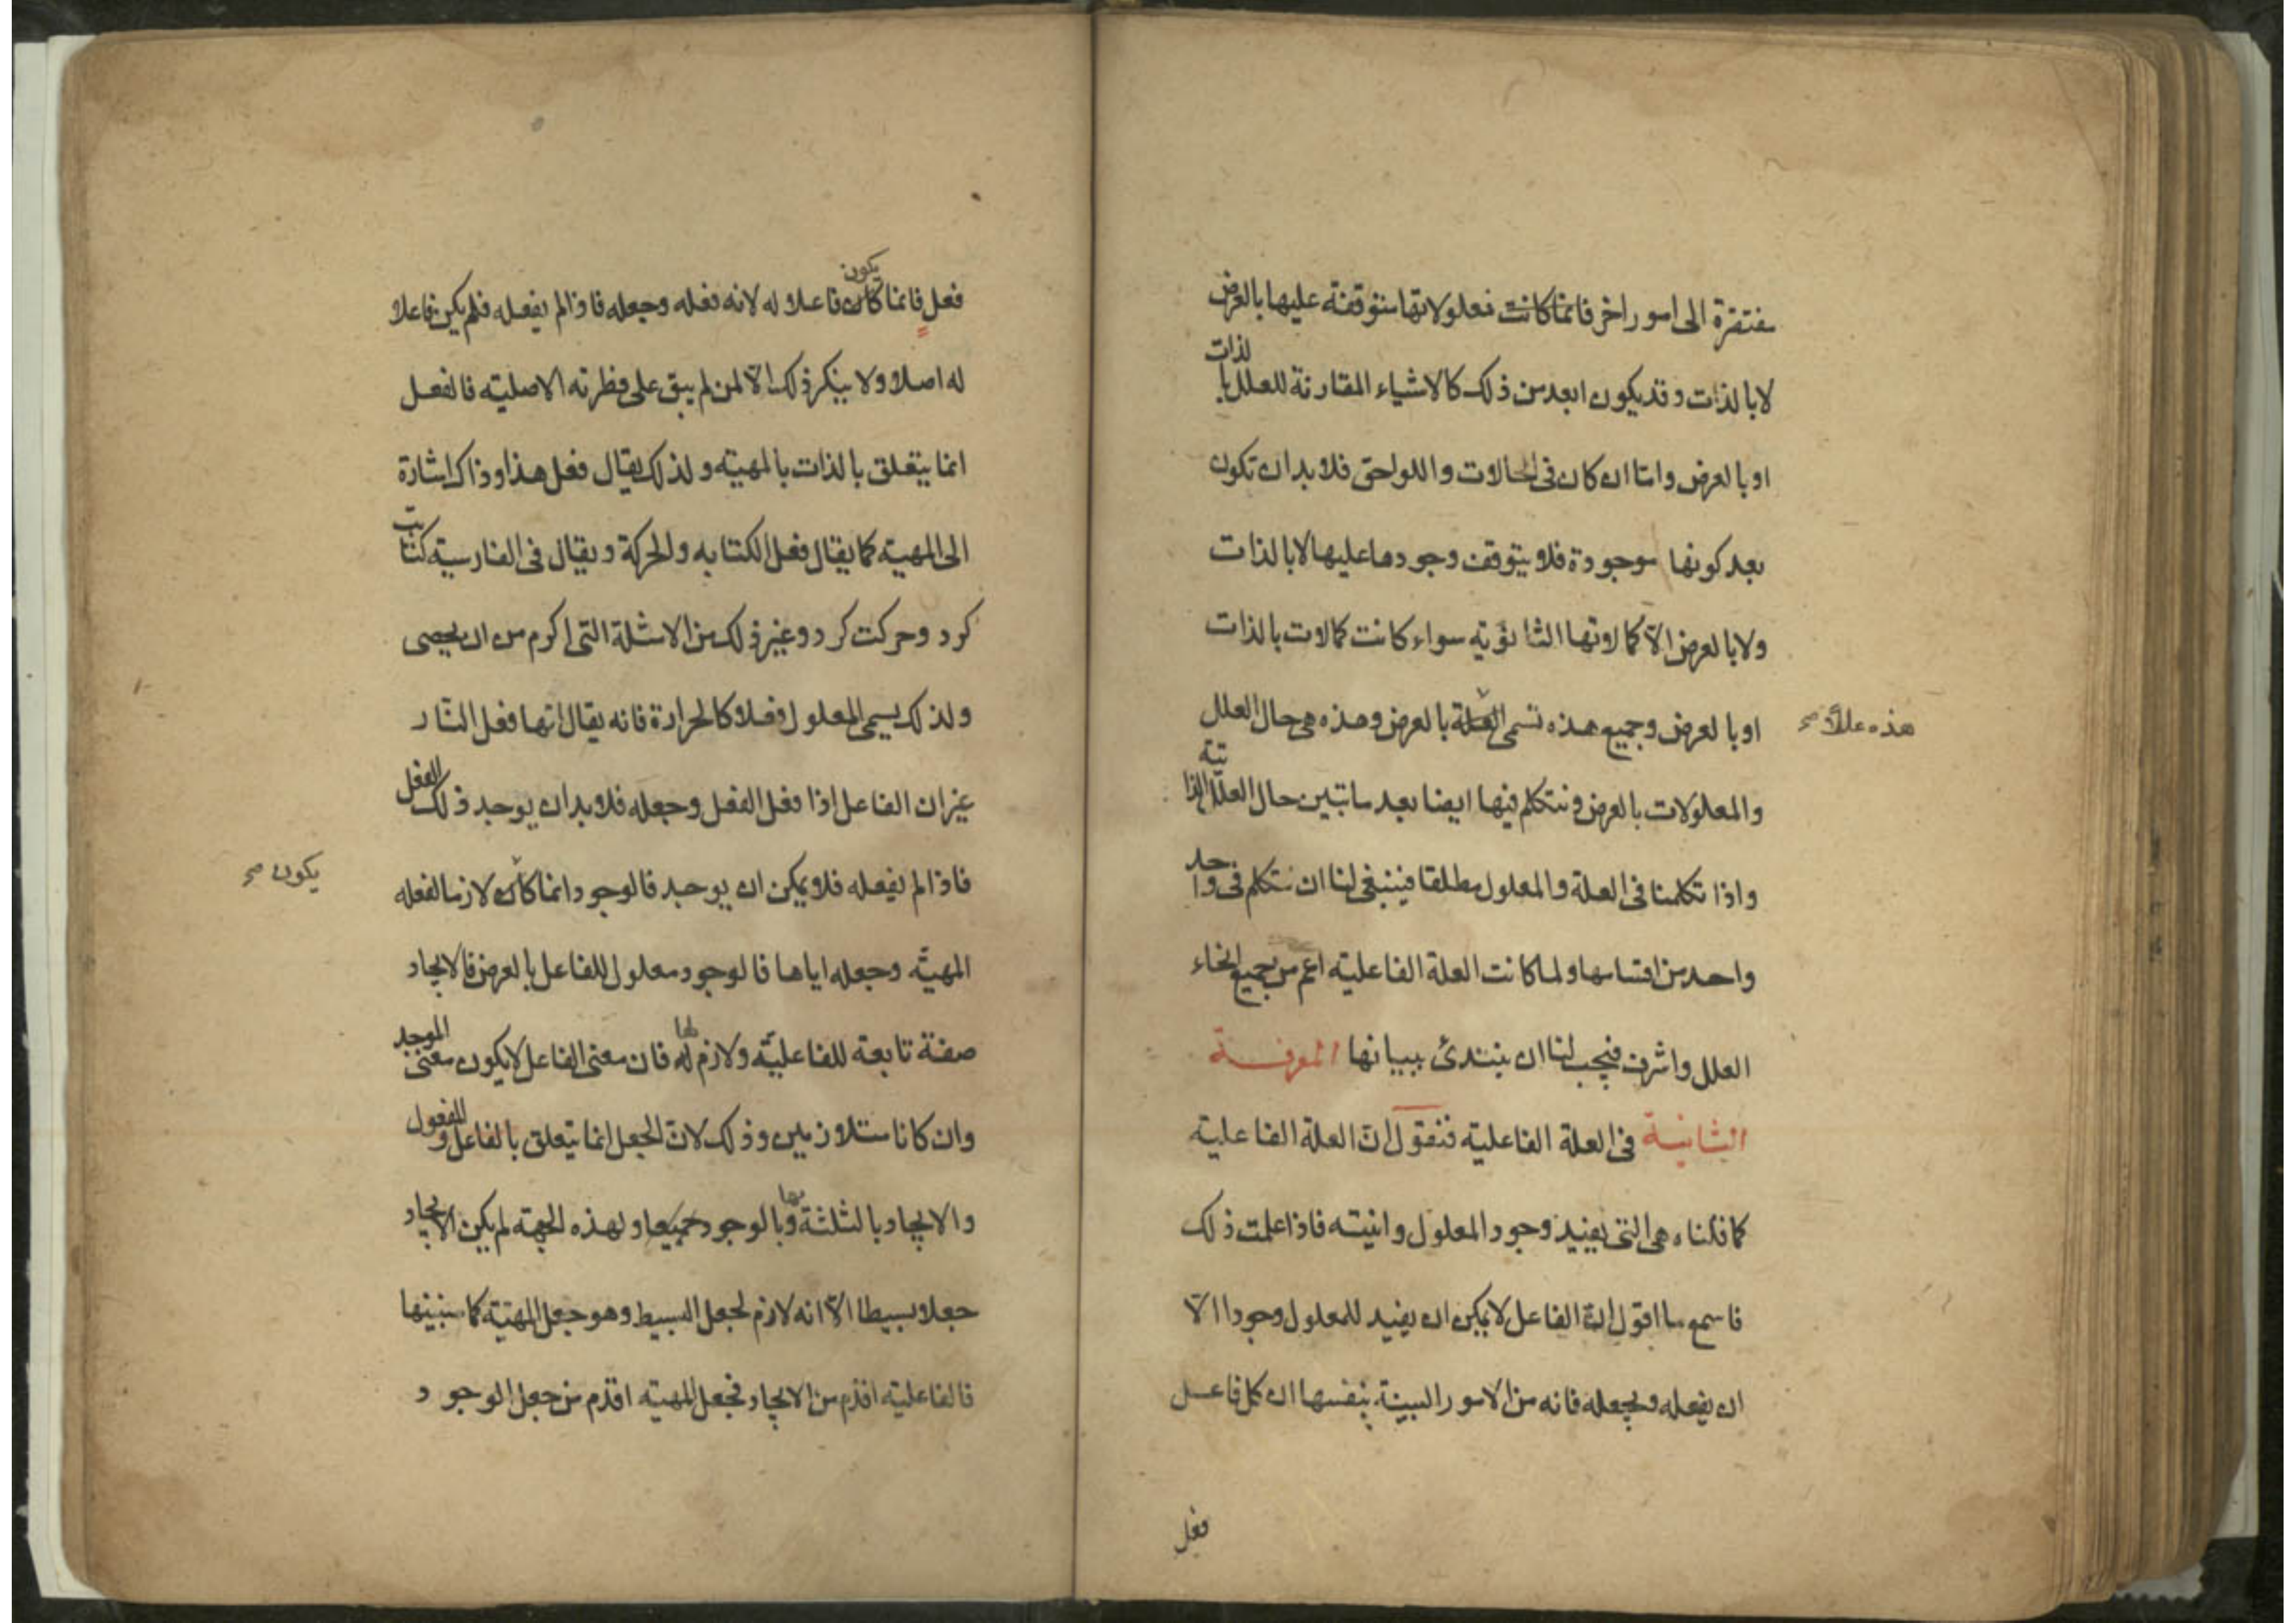 مفتقرة الى امور اخر فانما كانت معلولاتها متوقفة عليها بالعرض
لا بالذات وقد يكون ابعد من ذلك كالاشياء المقارنة للعلل بالذات
او بالعرض واما ان كان فى الحالات واللواحق فلا بد ان تكون
بعد كونها موجودة فلا يتوقف وجودها عليها لا بالذات
ولا بالعرض الا كمالاتها الثانوية سواء كانت كمالات بالذات
او بالعرض وجميع هذه تسمى العلة بالعرض وهذه هى حال العلل
هذه عللا صح
والمعلولات بالعرض ونتكلم فيها ايضا بعد ما تبين حال العلل الذاتية
واذا تكلمنا فى العلة والمعلول مطلقا فينبغى لنا ان نتكلم فى واحد
واحد من اقسامها ولما كانت العلة الفاعلية اعم من جميع انحاء
العلل واشرف فيجب لنا ان نبتدئ ببيانها المعرفة
الثانية فى العلة الفاعلية فنقول ان العلة الفاعلية
كما قلناه هى التى يفيد وجود المعلول وانيته فاذا علمت ذلك
فاسمع ما اقول ان الفاعل لا يمكن ان يفيد للمعلول وجودا الا
ان يفعله ويجعله فانه من الامور البينة بنفسها ان كل فاعل
فعل
فعل فانما كان يكون فاعلا له لانه فعله وجعله فاذا لم يفعله فلم يكن فاعلا
له اصلا ولا ينكر ذلك الا لمن لم يبق على فطرته الاصلية فالفعل
انما يتعلق بالذات بالمهية ولذلك يقال فعل هذا وذاك اشارة
الى المهية كما يقال فعل الكتابه والحركة ويقال فى الفارسية كتابت
كرد وحركت كرد وغير ذلك من الامثلة التى اكرم من ان يحصى
ولذلك يسمى المعلول فعلا كالحرارة فانه يقال انها فعل النار
غير ان الفاعل اذا فعل الفعل وجعله فلا بد ان يوجد ذلك الفعل
فاذا لم يفعله فلا يمكن ان يوجد فالوجود انما كان لازما لفعله
يكون صح
المهية وجعله اياها فالوجود معلول للفاعل بالعرض فالايجاد
صفة تابعة للفاعلية ولازم له لها فان معنى الفاعل لا يكون معنى الموجد
وان كانا متلازمين وذلك لان الجعل انما يتعلق بالفاعل والمفعول
والايجاد بالثلثة بها وبالوجود جميعا ولهذه الجهة لم يكن الايجاد
جعلا بسيطا الا انه لازم لجعل البسيط وهو جعل المهية كما سنبينها
فالفاعلية اقدم من الايجاد فجعل المهية اقدم من جعل الوجود